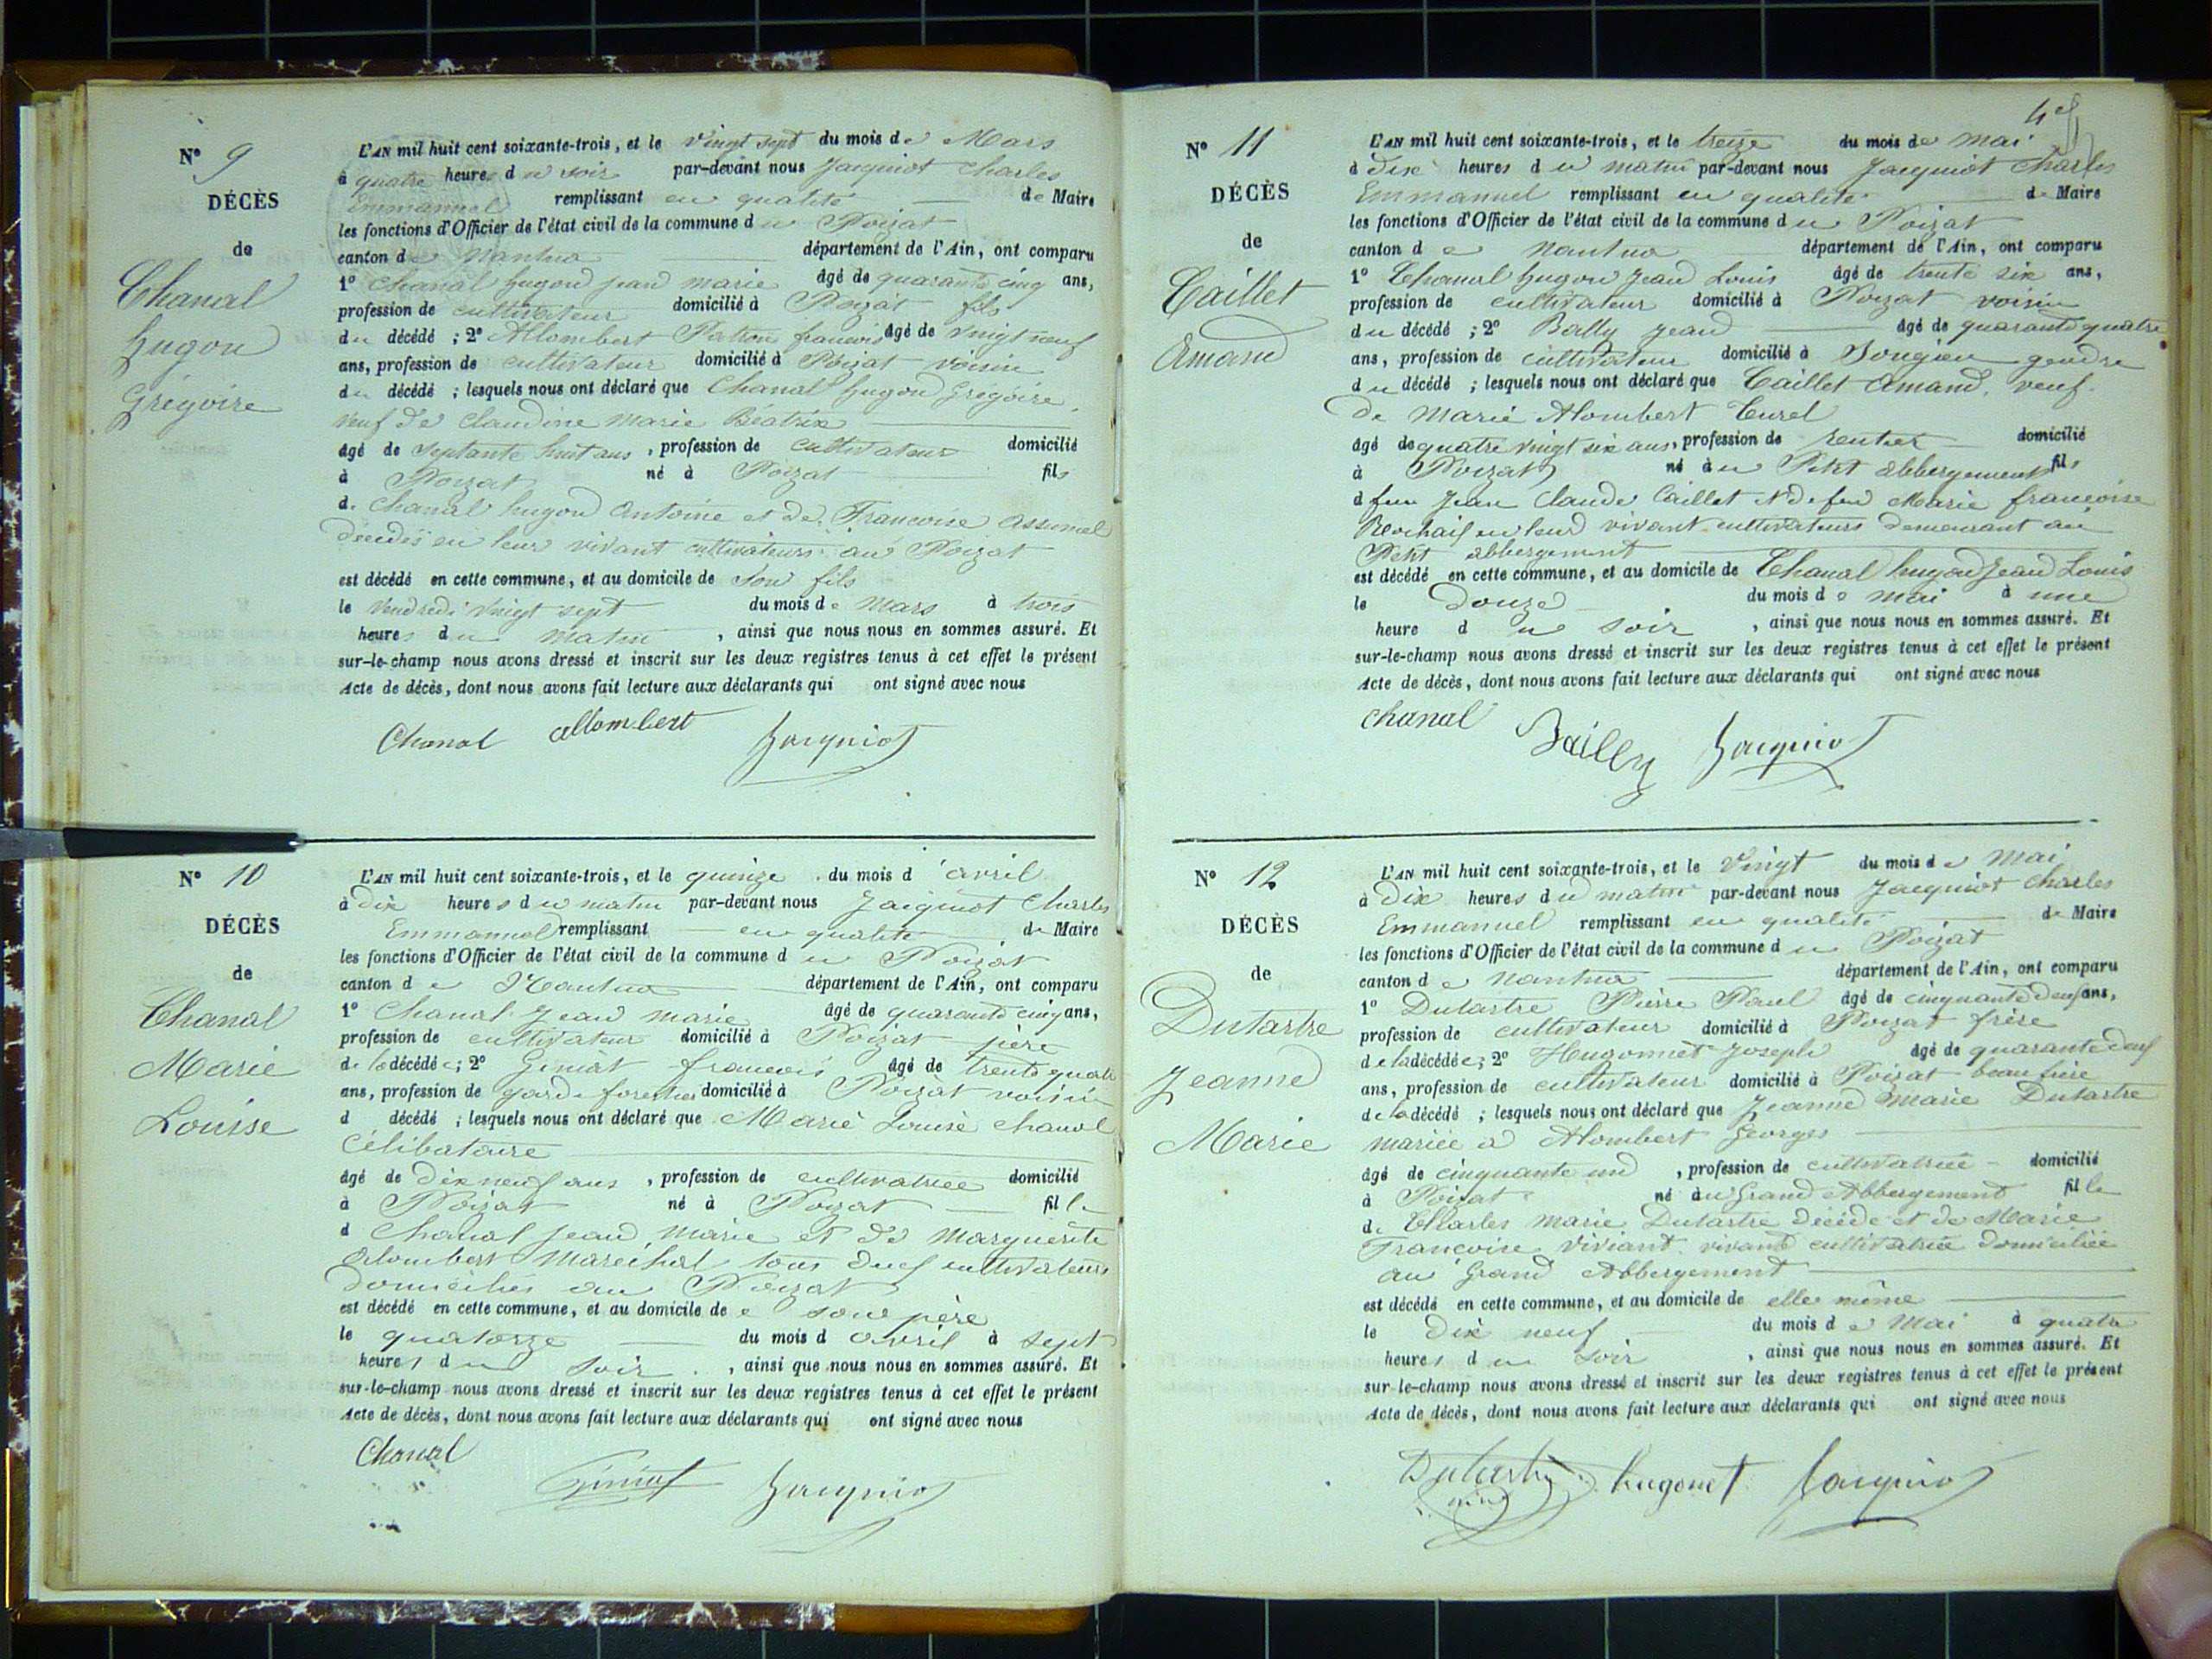 N° 9
DÉCÈS
de
Chanal
hugon
Grégoire
L'AN mil huit cent soixante-trois, et le vingt sept du mois de Mars
à quatre heures du soir par-devant nous Jacquiot Charles
Emmanuel remplissant en qualité de Maire
les fonctions d'Officier de l'état civil de la commune du Poizat
canton de Nantua département de l'Ain, ont comparu
1° Chanal hugon jean marie âgé de quarante cinq ans,
profession de cultivateur domicilié à Poizat fils
du décédé ; 2° Allombert francois âgé de vingt neuf
ans, profession de cultivateur domicilié à Poizat voisin
du décédé ; lesquels nous ont déclaré que Chanal hugon Grégoire
veuf de Claudine Marie Béatrix
âgé de septante huit ans, profession de cultivateur domicilié
à Poizat né à Poizat fils
de Chanal hugon Antoine et de Francoise Assumel
décédés en leur vivant cultivateurs au Poizat
est décédé en cette commune, et au domicile de son fils
le vendredi vingt sept du mois de Mars à trois
heures du matin, ainsi que nous nous en sommes assuré. Et
sur-le-champ nous avons dressé et inscrit sur les deux registres tenus à cet effet le présent
Acte de décès, dont nous avons fait lecture aux déclarants qui ont signé avec nous
Chanal allombert Jacquiot
N° 10
DÉCÈS
de
Chanal
Marie
Louise
L'AN mil huit cent soixante-trois, et le quinze du mois d'avril
à dix heures du matin par-devant nous Jacquiot Charles
Emmanuel remplissant en qualité de Maire
les fonctions d'Officier de l'état civil de la commune du Poizat
canton de Nantua département de l'Ain, ont comparu
1° Chanal Jean marie âgé de quarante cinq ans,
profession de cultivateur domicilié à Poizat père
de la décédée; 2° Giniat francois âgé de trente quatre
ans, profession de garde forestier domicilié à Poizat voisin
d décédé ; lesquels nous ont déclaré que Marie Louise Chanal
Célibataire
âgé de dix neuf ans, profession de cultivatrice domicilié
à Poizat né à Poizat fille
d Chanal jean marie et de Marguerite
Alombert Maréchal tous deux cultivateurs
domiciliés au Poizat
est décédé en cette commune, et au domicile de son père
le quatorze du mois d avril à sept
heures du soir, ainsi que nous nous en sommes assuré. Et
sur-le-champ nous avons dressé et inscrit sur les deux registres tenus à cet effet le présent
Acte de décès, dont nous avons fait lecture aux déclarants qui ont signé avec nous
Chanal Giniat Jacquiot
N° 11
DÉCÈS
de
Caillet
Amand
L'AN mil huit cent soixante-trois, et le treize du mois de mai
à dix heures du matin par-devant nous Jacquiot Charles
Emmanuel remplissant en qualité de Maire
les fonctions d'Officier de l'état civil de la commune du Poizat
canton de Nantua département de l'Ain, ont comparu
1° Chanal hugon Jean Louis âgé de trente six ans,
profession de cultivateur domicilié à Poizat voisin
du décédé ; 2° Bally Jean âgé de quarante quatre
ans, profession de cultivateur domicilié à Songieu gendre
du décédé ; lesquels nous ont déclaré que Caillet Amand, veuf
de Marie Alombert Curel
âgé de quatre vingt six ans, profession de rentier domicilié
à Poizat né à u Petit abbergement fils
d feu Jean Claude Caillet et de feu Marie francoise
en leur vivant cultivateurs demeurant au
Petit abbergement
est décédé en cette commune, et au domicile de Chanal hugon Jean Louis
le Douze du mois de mai à une
heure du soir, ainsi que nous nous en sommes assuré. Et
sur-le-champ nous avons dressé et inscrit sur les deux registres tenus à cet effet le présent
Acte de décès, dont nous avons fait lecture aux déclarants qui ont signé avec nous
chanal Bailly Jacquiot
N° 12
DÉCÈS
de
Dutartre
Jeanne
Marie
L'AN mil huit cent soixante-trois, et le Vingt du mois de mai
à Dix heures du matin par-devant nous Jacquiot Charles
Emmanuel remplissant en qualité de Maire
les fonctions d'Officier de l'état civil de la commune du Poizat
canton de Nantua département de l'Ain, ont comparu
1° Dutartre Pierre Paul âgé de cinquante deux ans,
profession de cultivateur domicilié à Poizat frère
de la décédée; 2° Hugonnet Joseph âgé de quarante deux
ans, profession de cultivateur domicilié à Poizat beau frère
de la décédé ; lesquels nous ont déclaré que Jeanne Marie Dutartre
mariée à Alombert Georges
âgé de cinquante un, profession de cultivatrice domicilié
à Poizat né àu Grand Abbergement fille
de Charles Marie Dutartre décédé et de Marie
Francoise Viviant vivant cultivatrice domiciliée
au Grand Abbergement
est décédé en cette commune, et au domicile de elle même
le Dix neuf du mois de Mai à quatre
heures du soir, ainsi que nous nous en sommes assuré. Et
sur-le-champ nous avons dressé et inscrit sur les deux registres tenus à cet effet le présent
Acte de décès, dont nous avons fait lecture aux déclarants qui ont signé avec nous
Dutartre hugonet Jacquiot